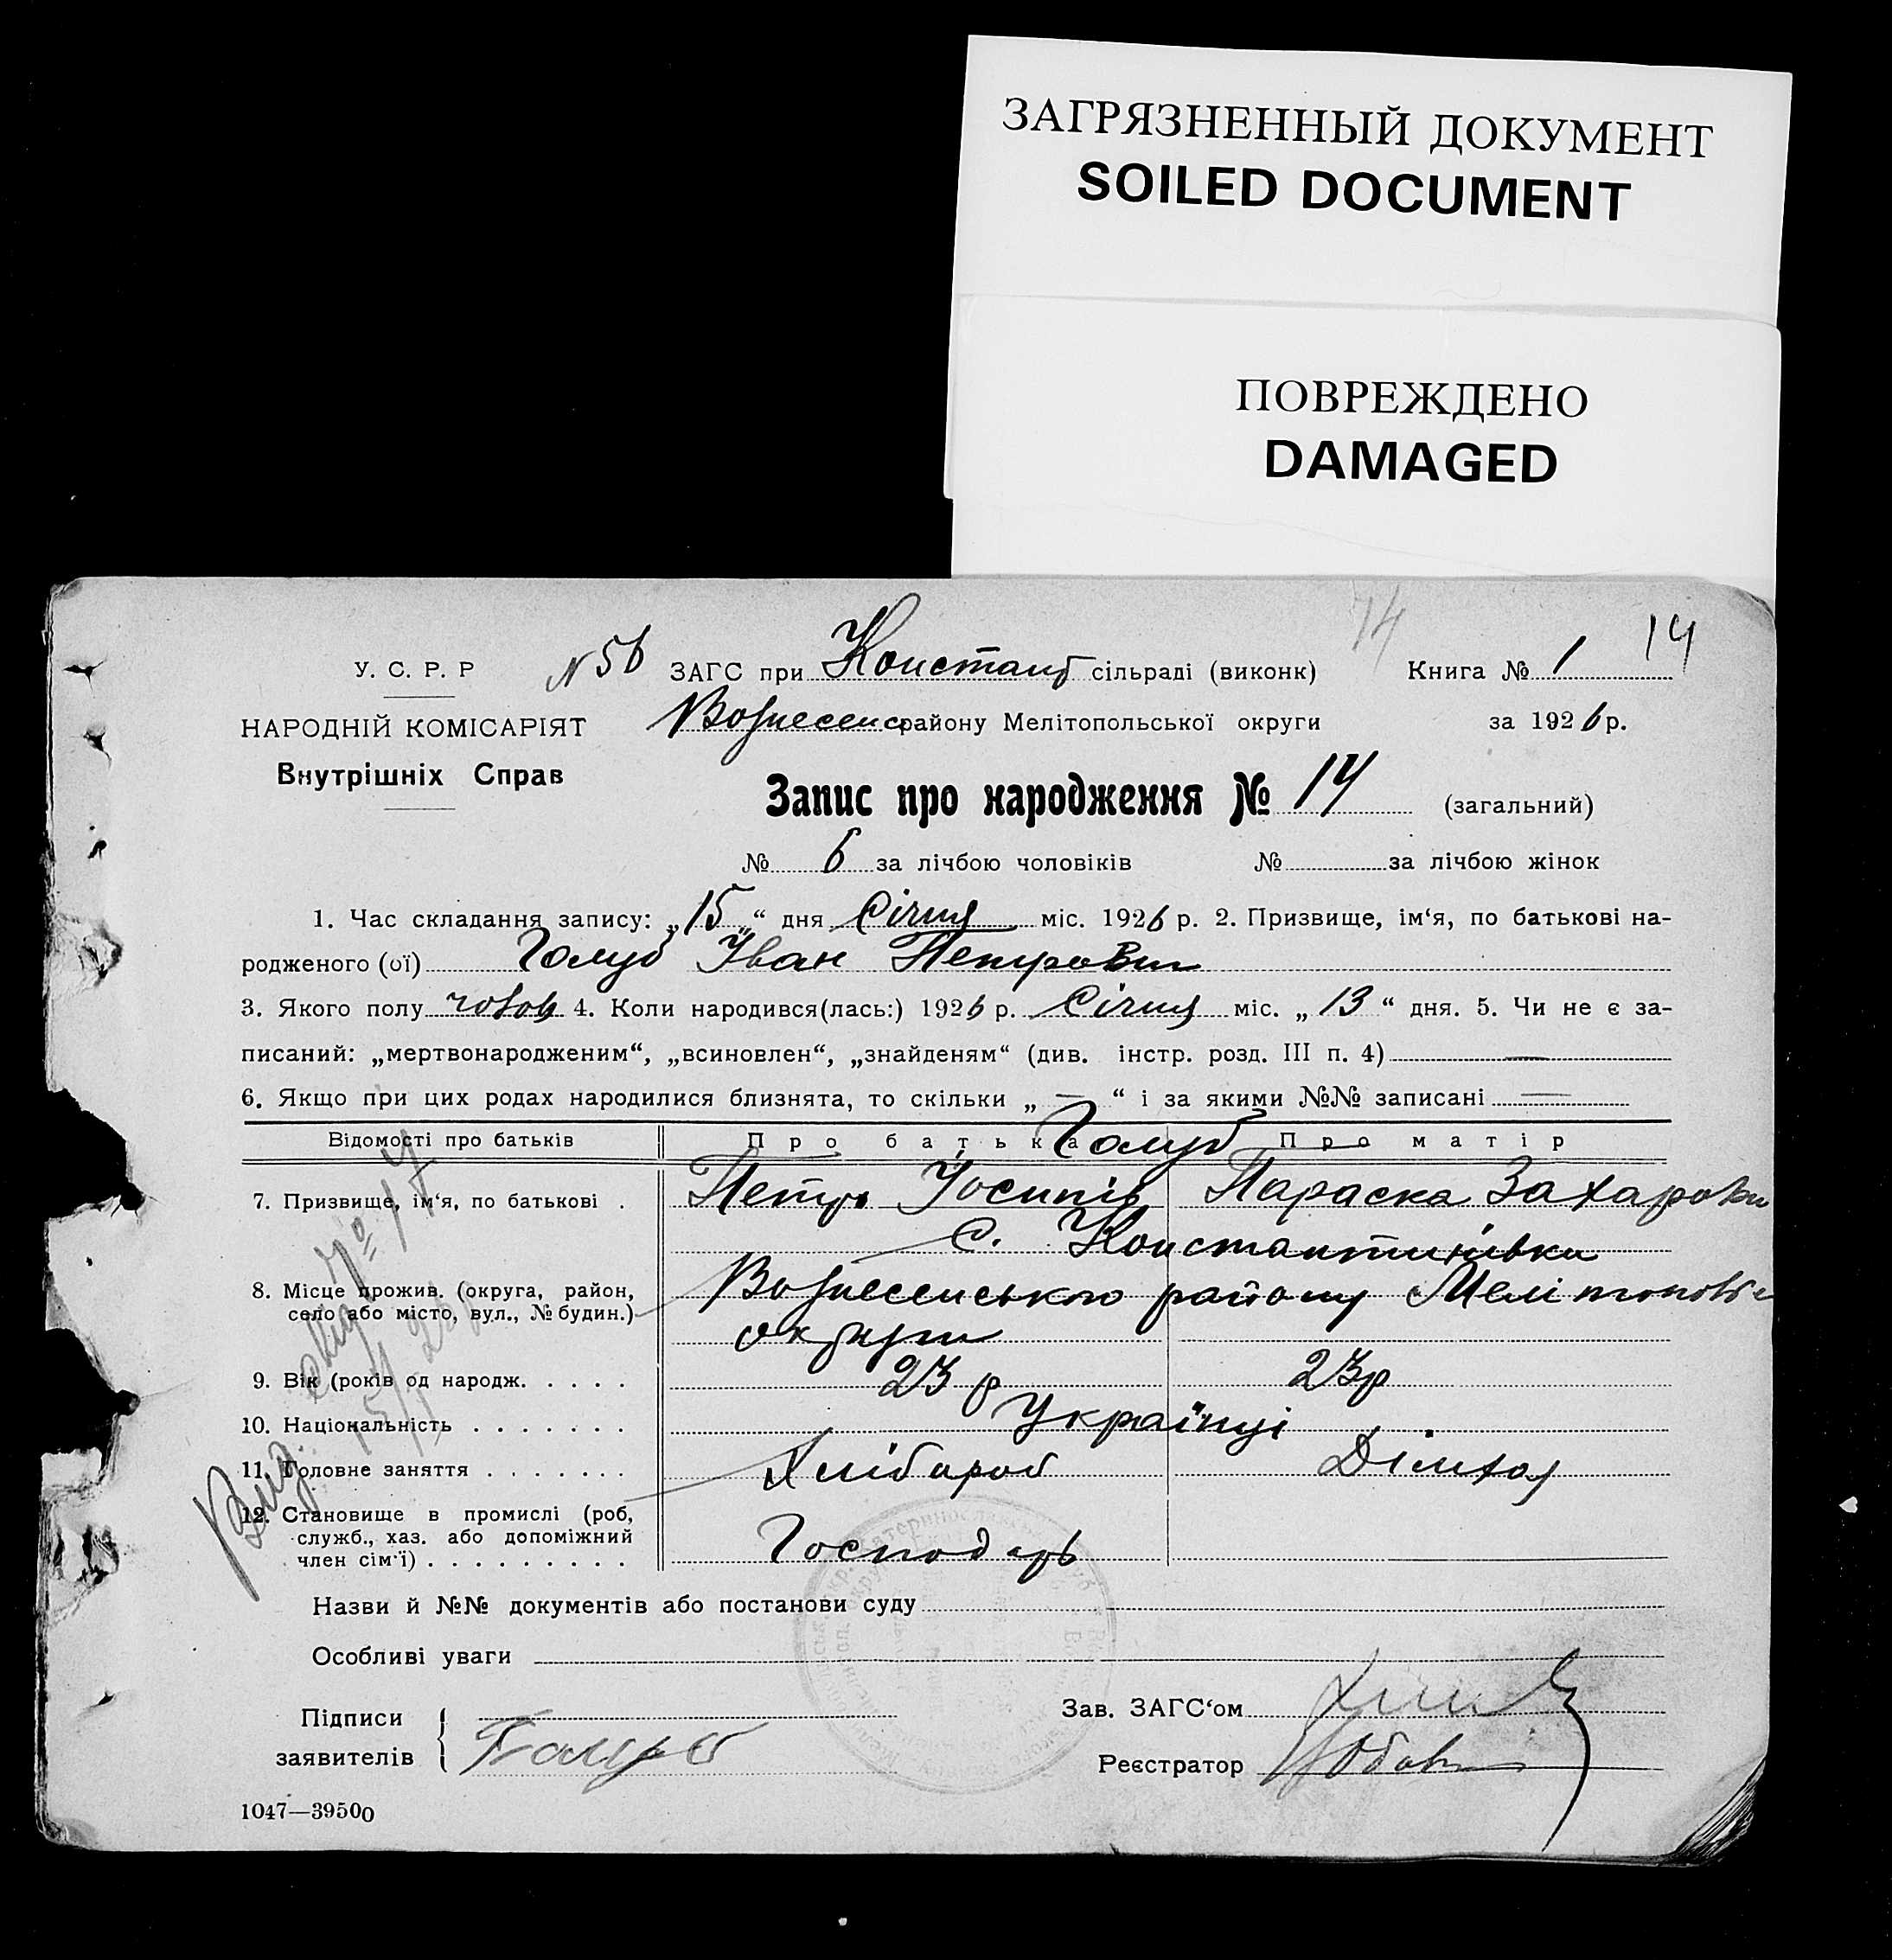 ЗАГРЯЗНЕННЫЙ ДОКУМЕНТ
SOILED DOCUMENT
ПОВРЕЖДЕНО
DAMAGED
14 14
У. С. Р. Р N 56 ЗАГС при Констант сільраді (виконк) Книга № 1
НАРОДНІЙ КОМІСАРІЯТ Вознесенс району Мелітопольської округи за 1926 р.
Внутрішніх Справ
Запис про народження № 14 (загальний)
№ 6 за лічбою чоловіків № за лічбою жінок
1. Час складання запису: „15“ дня Січня міс. 1926 р. 2. Призвище, ім‘я, по батькові на-
родженого (ої) Голуб Іван Петрович
3. Якого полу чолов 4. Коли народився(лась:) 1926 р. Січня міс. „13“ дня. 5. Чи не є за-
писаний: „мертвонародженим“, „всиновлен“, „знайденям“ (див. інстр. розд. III п. 4) —
6. Якщо при цих родах народилися близнята, то скільки „—“ і за якими №№ записані —
Відомості про батьків Про батька Голуб Про матір
7. Призвище, ім‘я, по батькові . Петро Йосипів Параска Захаровна
с. Константинівки
8. Місце прожив. (округа, район, Вознесенського району Мелітопольс
село або місто, вул., № будин.)
округи
9. Вік (років од народж. . . . . 23 р 23р
10. Національність . . . . . . . Українці
11. Головне заняття . . . . . . . Хлібороб Дімхоз
12. Становище в промислі (роб,
служб., хаз. або допоміжний Господарь
член сім‘ї) . . . . . . . . .
Назви й №№ документів або постанови суду
Особливі уваги
Підписи Зав. ЗАГС‘ом
заявителів Голуб Реєстратор
1047—39500